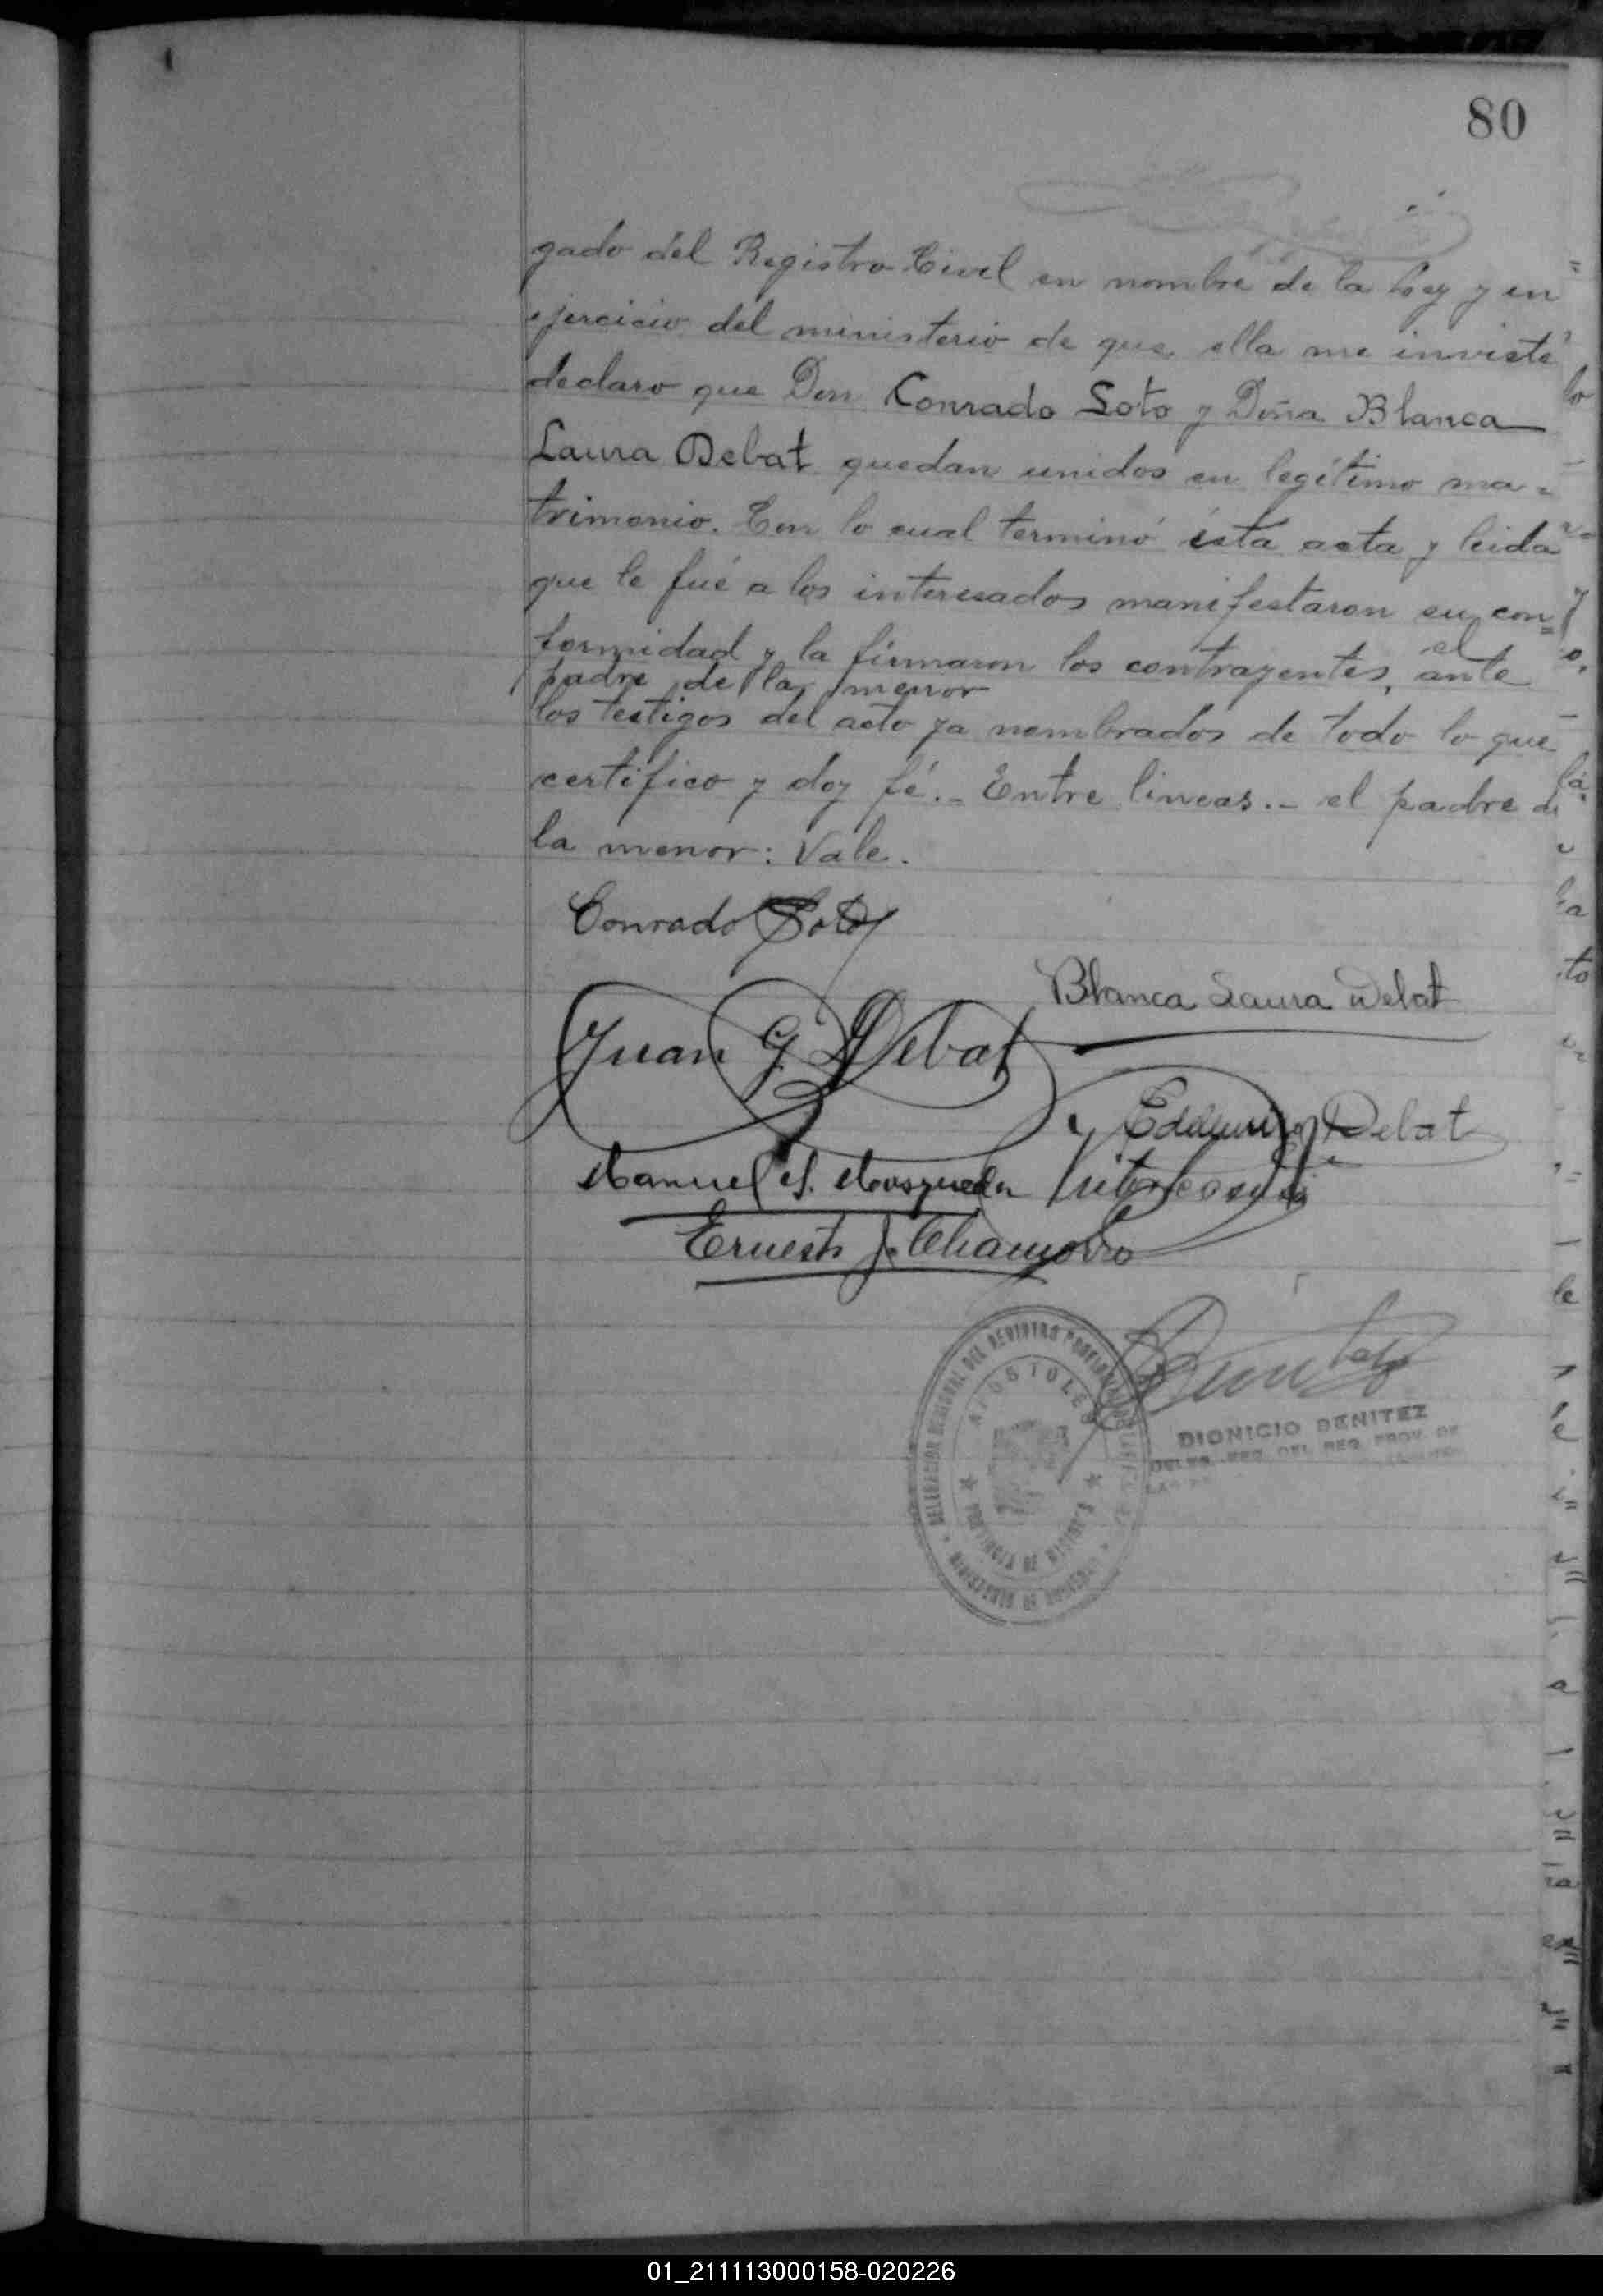 80
gado del Registro Civil en nombre de la Ley y en
ejercicio del ministerio de que ella me inviste
declaro que Don Conrado Soto y Doña Blanca
Laura Debat quedan unidos en legítimo ma=
trimonio. Con lo cual terminó ésta acta y leida
que le fué a los interesados manifestaron su con=
formidad y la firmaron los contrayentes, el ante
padre de la menor
los testigos del acto ya nombrados de todo lo que
certifico y doy fé.- Entre lineas.- el padre de
la menor: Vale.
Conrado Soto
Blanca Laura Debat
Juan G. Debat
Debat
Manuel
Ernesto J. Chamorro
DELEGACION DEL REGISTRO PROVINCIAL
APOSTOLES
PROVINCIA DE MISIONES
DIONICIO BENITEZ
DEL REG. PROV. DE
01_211113000158-020226